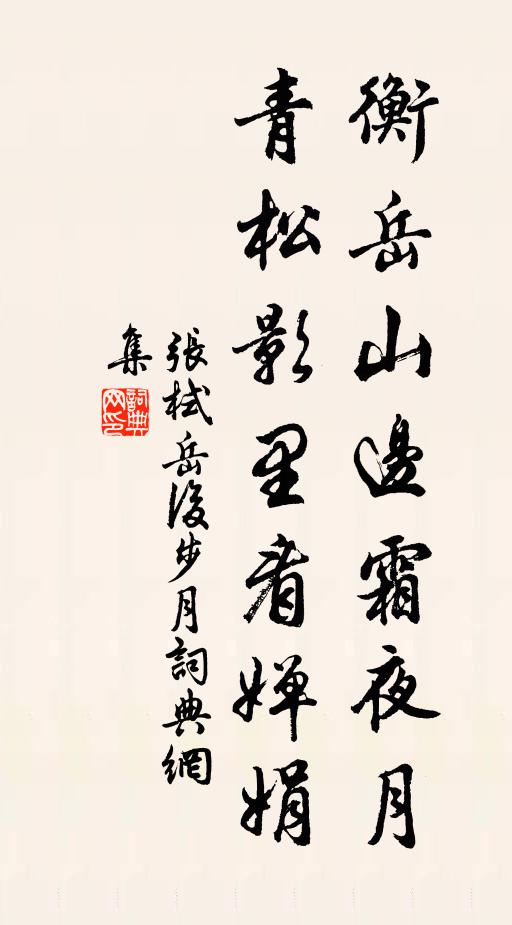 衡岳山邊霜夜月
青松影里看嬋娟
張栻岳後步月詞典網
集
詞典網印